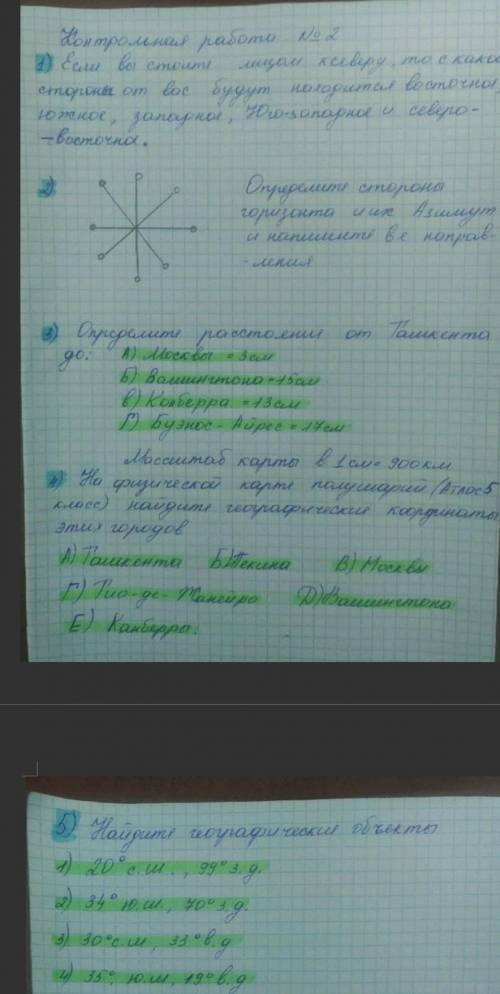 Контрольная работа №2
1) Если вы стоите лицом к северу, то с какой
стороны от вас будут находится восточное,
южное, западное, Юго-западное и северо-
-восточное.
2)
Определите стороны
горизонта и их Азимут
и напишите все направ-
-ления
3) Определите расстояние от Ташкента
до: А) Москвы = 3см
Б) Вашингтона = 15см
в) Канберра = 13см
Г) Буэнос-Айрес = 17см
Масштаб карты в 1см = 900км
4) На физической карте полушарий (Атлас 5
класс) найдите географические координаты
этих городов
А) Ташкента Б) Пекина В) Москвы
Г) Рио-де-Жанейро Д) Вашингтона
Е) Канберры.
5) Найдите географические объекты
1) 20° с.ш., 99° з.д.
2) 34° ю.ш, 70° з.д.
3) 30° с.ш, 33° в.д
4) 35°, ю.ш, 19° в.д